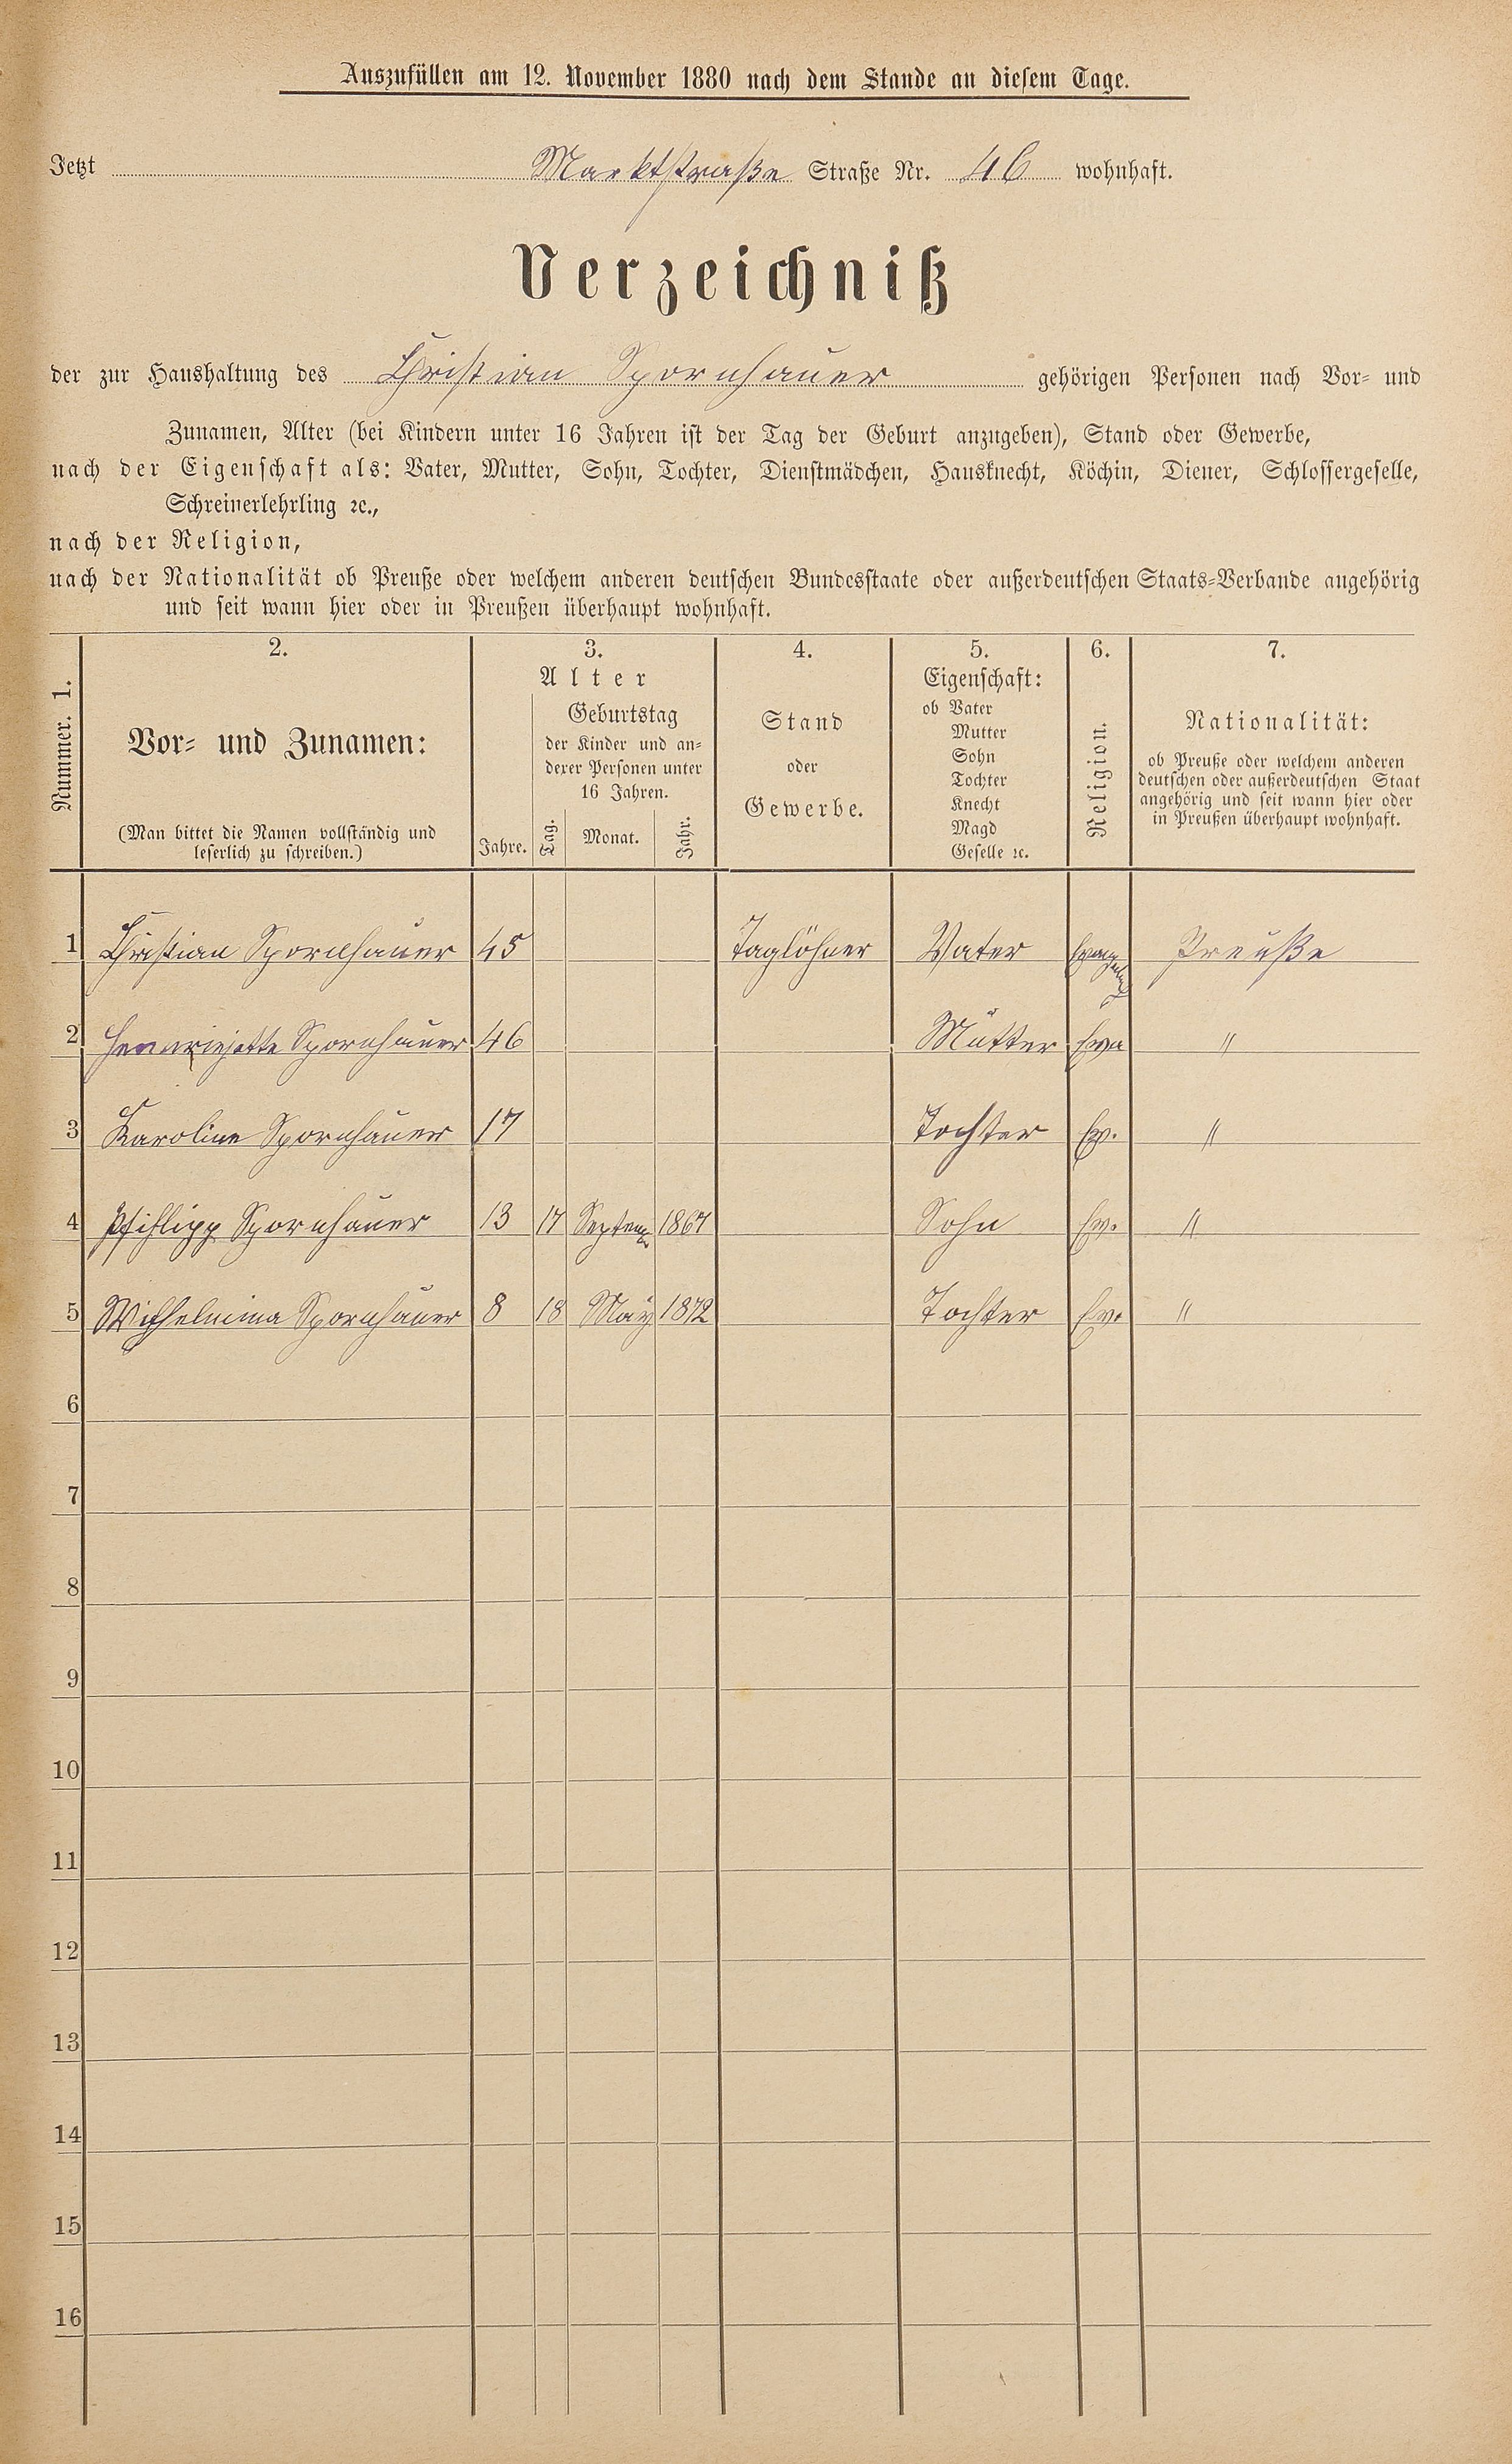 Auszufüllen am 12. November 1880 nach dem Stande an diesem Tage.
Jetzt Marktstraße Straße Nr. 46 wohnhaft.
Verzeichniß
der zur Haushaltung des Christian Spornhauer gehörigen Personen nach Vor- und
Zunamen, Alter (bei Kindern unter 16 Jahren ist der Tag der Geburt anzugeben), Stand oder Gewerbe,
nach der Eigenschaft als: Vater, Mutter, Sohn, Tochter, Dienstmädchen, Hausknecht, Köchin, Diener, Schlossergeselle,
Schreinerlehrling ꝛc.,
nach der Religion,
nach der Nationalität ob Preuße oder welchem anderen deutschen Bundesstaate oder außerdeutschen Staats-Verbande angehörig
und seit wann hier oder in Preußen überhaupt wohnhaft.
Nummer. 1.
2.
Vor- und Zunamen:
(Man bittet die Namen vollständig und
leserlich zu schreiben.)
3.
Alter
Jahre.
Geburtstag
der Kinder und an-
derer Personen unter
16 Jahren.
Tag. Monat. Jahr.
4.
Stand
oder
Gewerbe.
5.
Eigenschaft:
ob Vater
Mutter
Sohn
Tochter
Knecht
Magd
Geselle ꝛc.
6.
Religion.
7.
Nationalität:
ob Preuße oder welchem anderen
deutschen oder außerdeutschen Staat
angehörig und seit wann hier oder
in Preußen überhaupt wohnhaft.
1 Christian Spornhauer 45 Taglöhner Vater Preuße
2 Hennriejette Spornhauer 46 Mutter Eva "
3 Karoline Spornhauer 17 Tochter Ev. "
4 Phihlipp Spornhauer 13 17 Septem 1867 Sohn Ev. "
5 Wilhelmina Spornhauer 8 18 May 1872 Tochter Ev. "
6
7
8
9
10
11
12
13
14
15
16